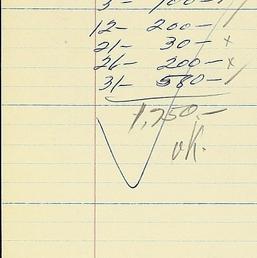 3- 100-/
12- 200-
21- 30- x
26- 200- x
31- 580-/
1,750.-
ok.